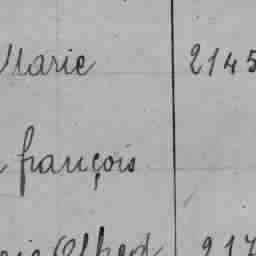 Marie 2145
françois
Alfred 217